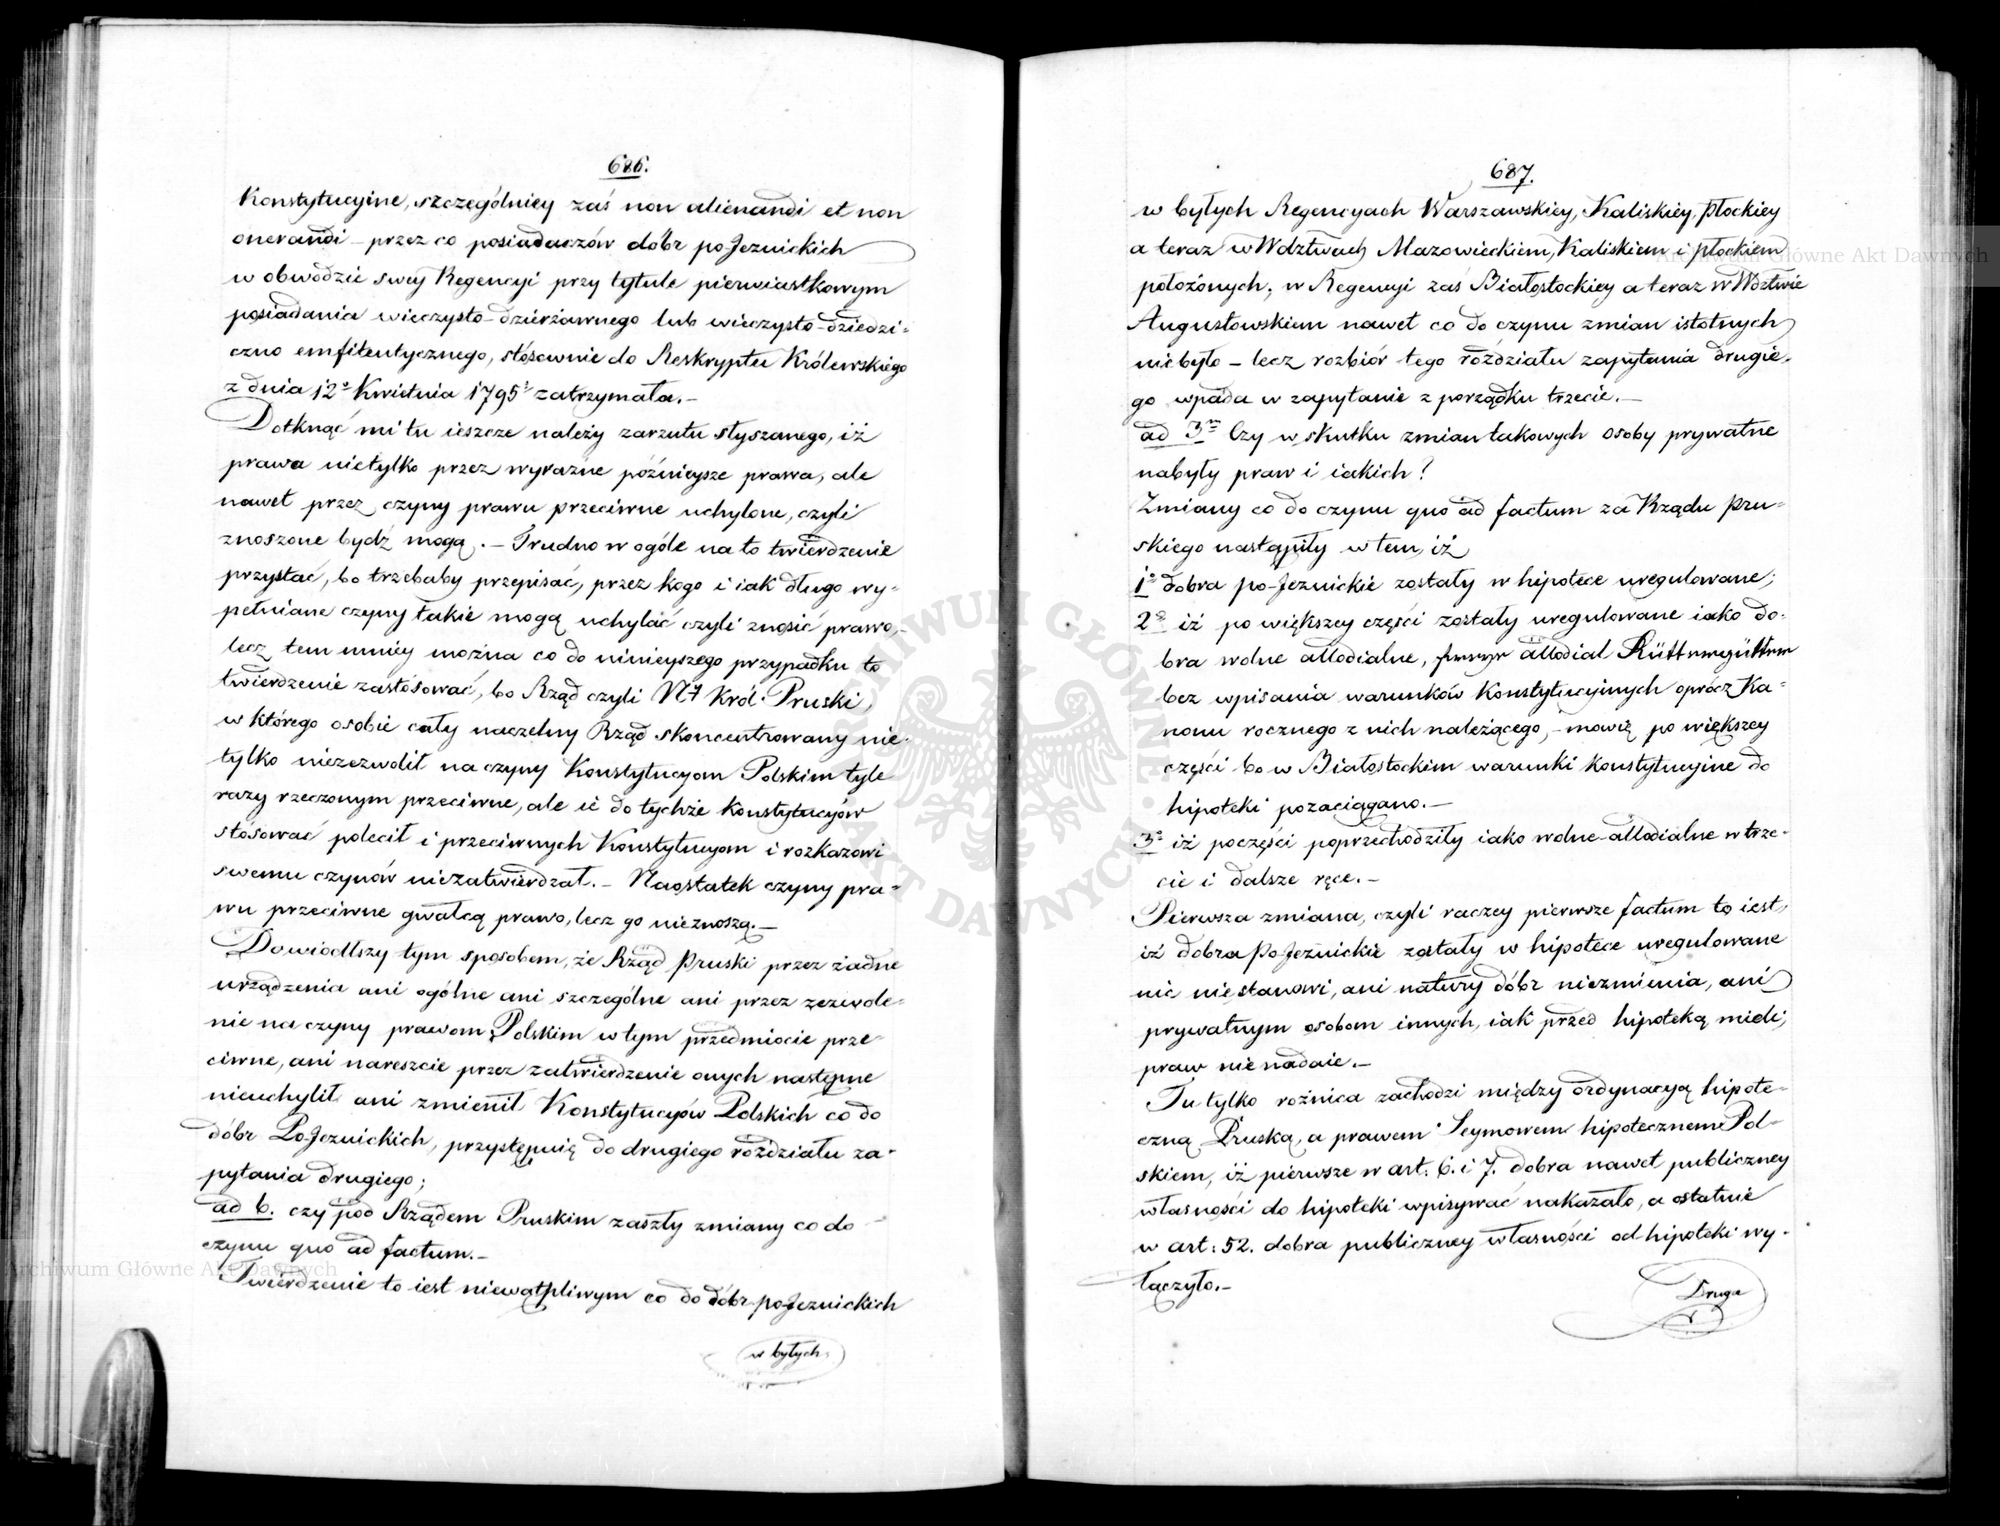 686.
Konstytucyine, szczególniey zaś non alienandi et non
onerandi – przez co posiadaczów dóbr po-Jezuickich
w obwodzie swey Regencyi przy tytule pierwiastkowym
posiadania wieczysto-dzierżawnego lub wieczysto-dziedzi-
czno emfiteutycznego, stósownie do Reskryptu Królewskiego
z dnia 12º Kwietnia 1795º zatrzymała.–
Dotknąć mi tu ieszcze należy zarzutu słyszanego, iż
prawa nietylko przez wyraźne późnieysze prawa, ale
nawet przez czyny prawu przeciwne uchylone, czyli
znoszone bydź mogą.– Trudno w ogóle na to twierdzenie
przystać, bo trzebaby przepisać, przez kogo i iak długo wy-
pełniane czyny takie mogą uchylać czyli znosić prawo,
lecz tem mniey można co do ninieyszego przypadku to
twierdzenie zastósować, bo Rząd czyli Król Pruski,
w którego osobie cały naczelny Rząd skoncentrowany nie-
tylko niezezwolił na czyny Konstytucyom Polskim tyle
razy rzeczonym przeciwne, ale ie do tychże Konstytucyów
stósować polecił i przeciwnych Konstytucyom i rozkazowi
swemu czynów niezatwierdzał.– Naostatek czyny pra-
wu przeciwne gwałcą prawo, lecz go nieznoszą.–
Dowiódłszy tym sposobem, że Rząd Pruski przez żadne
urządzenia ani ogólne ani szczególne ani przez zezwole-
nie na czyny prawom Polskim w tym przedmiocie prze-
ciwne, ani nareszcie przez zatwierdzenie onych następne
nieuchylił ani zmienił Konstytucyów Polskich co do
dóbr Po-Jezuickich, przystępuię do drugiego rozdziału za-
pytania drugiego;
ad b. czy pod Rządem Pruskim zaszły zmiany co do
czynu quo ad factum.–
Twierdzenie to iest niewątpliwym co do dóbr po-Jezuickich
w byłych
687.
w byłych Regencyach Warszawskiey, Kaliskiey, Płockiey
a teraz w Wdztwach Mazowieckiem, Kaliskiem i Płockiem
położonych; w Regencyi zaś Białostockiey a teraz w Wdztwie
Augustowskiem nawet co do czynu zmian istotnych
nie było – lecz rozbiór tego rozdziału zapytania drugie-
go wpada w zapytanie z porządku trzecie.–
ad 3m Czy w skutku zmian takowych osoby prywatne
nabyły praw i iakich?
Zmiany co do czynu quo ad factum za Rządu Pru-
skiego nastąpiły w tem, iż
1º dobra po-Jezuickie zostały w hipotece uregulowane;
2º iż po większey części zostały uregulowane iako do-
bra wolne allodialne, allodial
bez wpisania warunków Konstytucyinych oprócz Ka-
nonu rocznego z nich należącego,– mowię po większey
części bo w Białostockim warunki konstytucyine do
hipoteki pozaciągano.–
3º iż poczęści poprzechodziły iako wolne-allodialne w trze-
cie i dalsze ręce.–
Pierwsza zmiana, czyli raczey pierwsze factum to iest,
iż dobra Po-Jezuickie zostały w hipotece uregulowane
nic niestanowi, ani natury dóbr niezmienia, ani
prywatnym osobom innych, iak przed hipoteką mieli,
praw nienadaie.–
Tu tylko roźnica zachodzi między ordynacyą hipote-
czną Pruską, a prawem Seymowem hipotecznem Pol-
skiem, iż pierwsze w art. 6. i 7. dobra nawet publiczney
własności do hipoteki wpisywać nakazało, a ostatnie
w art: 52. dobra publiczney własności od hipoteki wy-
łączyło.–
Druga
Archiwum Główne Akt Dawnych
Archiwum Główne Akt Dawnych
ARCHIWUM GŁÓWNE AKT DAWNYCH